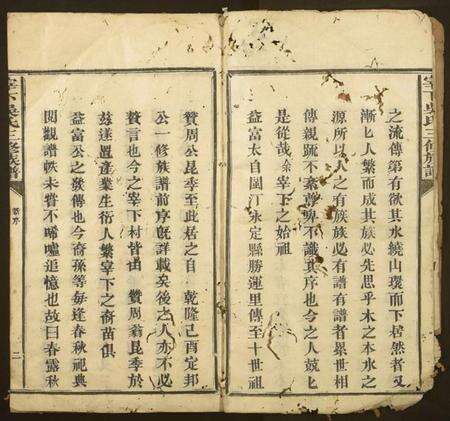 之流傳第有欲其水繞山環而下居然者又
漸匕人繁而成其族必先思乎木之本水之
源所以人之有族族必有譜有譜者累世相
傳親疏不紊尊卑不識其序也今之人兢匕
是從哉余宰下之始祖
益富太自閩汀永定縣勝運里傳至十世祖
贊周公昆季至此居之自 乾隆己酉定邦
公一修族譜前序旣詳載矣後之人亦不必
贊言也今之宰下村皆由 贊周翁昆季於
茲遂置產業生衍人繁宰下之裔苗俱
益富公之發傳也今裔孫等每逢春秋祀典
閱觀譜帙未嘗不唏噓追憶也故曰春露秋
宰下吳氏三修族譜
新序
二
宰下吳氏三修族譜